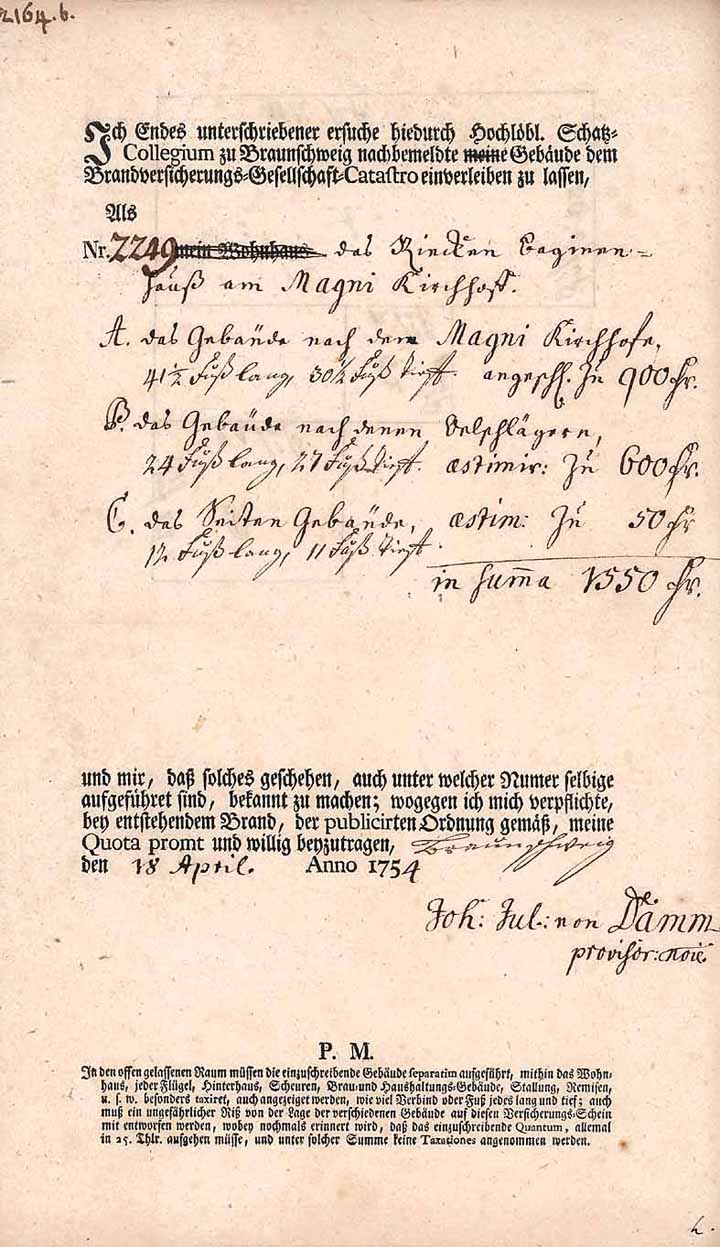 2164.b.
Ich Endes unterschriebener ersuche hiedurch Hochlöbl. Schatz-
Collegium zu Braunschweig nachbemeldte meine Gebäude dem
Brandversicherungs-Gesellschaft-Catastro einverleiben zu lassen,
Als
Nr. 2249 mein Wohnhaus das Riecken Baginen-
Hauß am Magni Kirchhoff.
A. das Gebäude nach dem Magni Kirchhofe,
41½ Fuß lang, 30½ Fuß tieff. angeschl. zu 900 thr.
B. das Gebäude nach denen Oelschlägern,
24 Fuß lang, 27 Fuß tieff. æstimir: zu 600 thr.
C. das Seiten Gebäude, æstim: zu 50 thr
12 Fuß lang, 11 Fuß tieff.
in Sum̄a 1550 thr.
und mir, daß solches geschehen, auch unter welcher Numer selbige
aufgeführet sind, bekannt zu machen; wogegen ich mich verpflichte,
bey entstehendem Brand, der publicirten Ordnung gemäß, meine
Quota promt und willig beyzutragen, Braunschweig
den 18 April. Anno 1754
Joh: Jul: von Damm
provisor: noie.
P. M.
In den offen gelassenen Raum müssen die einzuschreibende Gebäude separatim aufgeführt, mithin das Wohn-
haus, jeder Flügel, Hinterhaus, Scheuren, Brau-und Haushaltungs-Gebäude, Stallung, Remisen,
u. s. w. besonders taxiret, auch angezeiget werden, wie viel Verbind oder Fuß jedes lang und tief; auch
muß ein ungefährlicher Riß von der Lage der verschiedenen Gebäude auf diesen Versicherungs-Schein
mit entworfen werden, wobey nochmals erinnert wird, daß das einzuschreibende Quantum, allemal
in 25. Thlr. aufgehen müsse, und unter solcher Summe keine Taxationes angenommen werden.